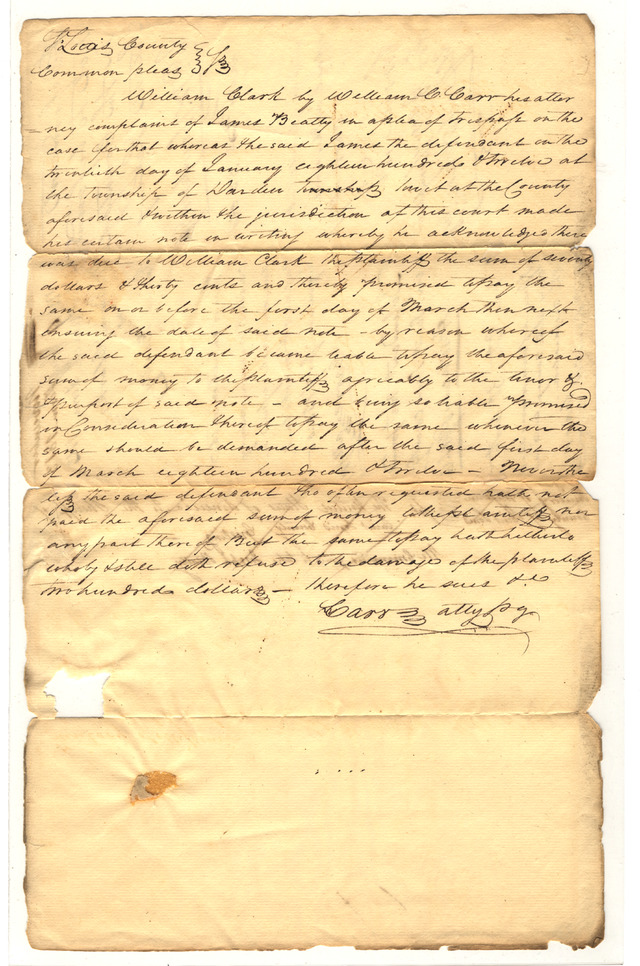 St Louis County
Common pleas } ss
William Clark by William C. Carr his attor
=ney complaint of James Beatty in a plea of trespass on the
case for that whereas the said James the defendant on the
twentieth day of January eighteen hundred & twelve at
the township of Darden township towit at the County
aforesaid & within the jurisdiction of this court made
his certain note in writing whereby he acknowledged there
was due to William Clark the plaintiff the sum of seventy
dollars & thirty cents and thereby promised to pay the
same on or before the first day of March then next
ensuing the date of said note – by reason whereof
the said defendant became leable to pay the aforesaid
sum of money to the plaintiff agreeably to the tenor &
& purport of said note – and being so liable promised
in Consideration thereof to pay the same whenever the
same should be demanded after the said first day
of March eighteen hundred & twelve – Never the
less the said defendant tho often requested hath not
paid the aforesaid sum of money to the plaintiff nor
any part thereof But the same to pay hath hitherto
wholy & still doth refuse to the damage of the plaintiff
two hundred dollars – therefore he sues &c
Carr atty p q